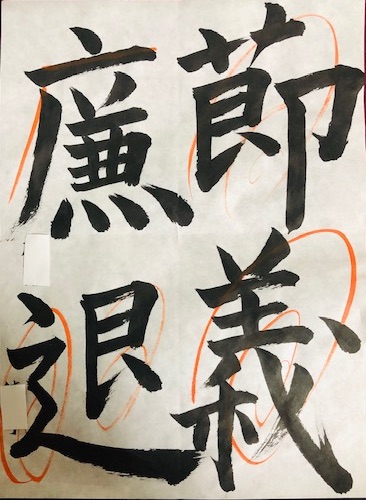 節義
廉退